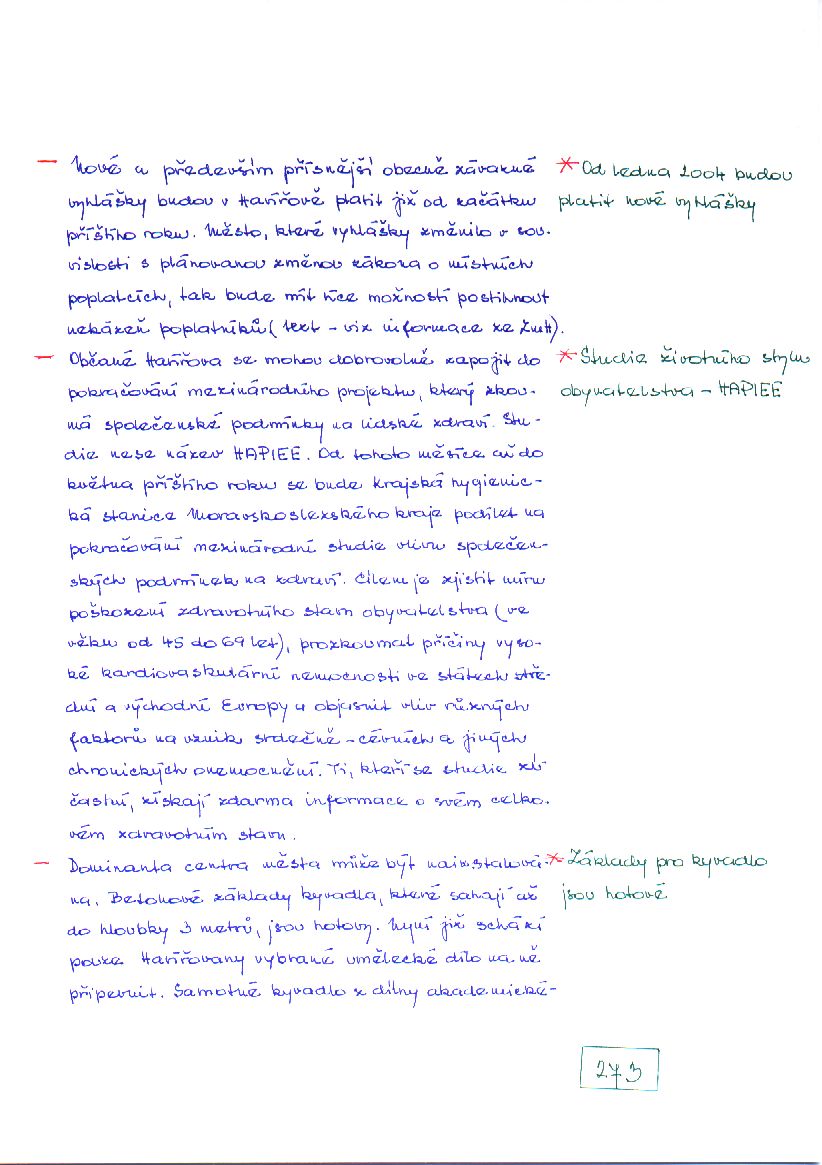 — Nové a především přísnější obecně závazné
vyhlášky budou v Havířově platit již od začátku
příštího roku. Město, které vyhlášky změnilo v sou-
vislosti s plánovanou změnou zákona o místních
poplatcích, tak bude mít více možností postihnout
nekázeň poplatníků (text - viz informace ze ZMH).
* Od ledna 2004 budou
platit nové vyhlášky
— Občané Havířova se mohou dobrovolně zapojit do
pokračování mezinárodního projektu, který zkou-
má společenské podmínky na lidské zdraví. Stu-
die nese název HAPIEE. Od tohoto měsíce až do
května příštího roku se bude Krajská hygienic-
ká stanice Moravskoslezského kraje podílet na
pokračování mezinárodní studie vlivu společen-
ských podmínek na zdraví. Cílem je zjistit míru
poškození zdravotního stavu obyvatelstva (ve
věku od 45 do 69 let), prozkoumat příčiny vyso-
ké kardiovaskulární nemocnosti ve státech stře-
dní a východní Evropy a objasnit vliv různých
faktorů na vznik srdečně - cévních a jiných
chronických onemocnění. Ti, kteří se studie zú-
častní, získají zdarma informace o svém celko-
vém zdravotním stavu.
* Studie životního stylu
obyvatelstva - HAPIEE
— Dominanta centra města může být nainstalová-
na. Betonové základy kyvadla, které sahají až
do hloubky 3 metrů, jsou hotovy. Nyní již schází
pouze Havířovany vybrané umělecké dílo na ně
připevnit. Samotné kyvadlo z dílny akademické-
* Základy pro kyvadlo
jsou hotové
273